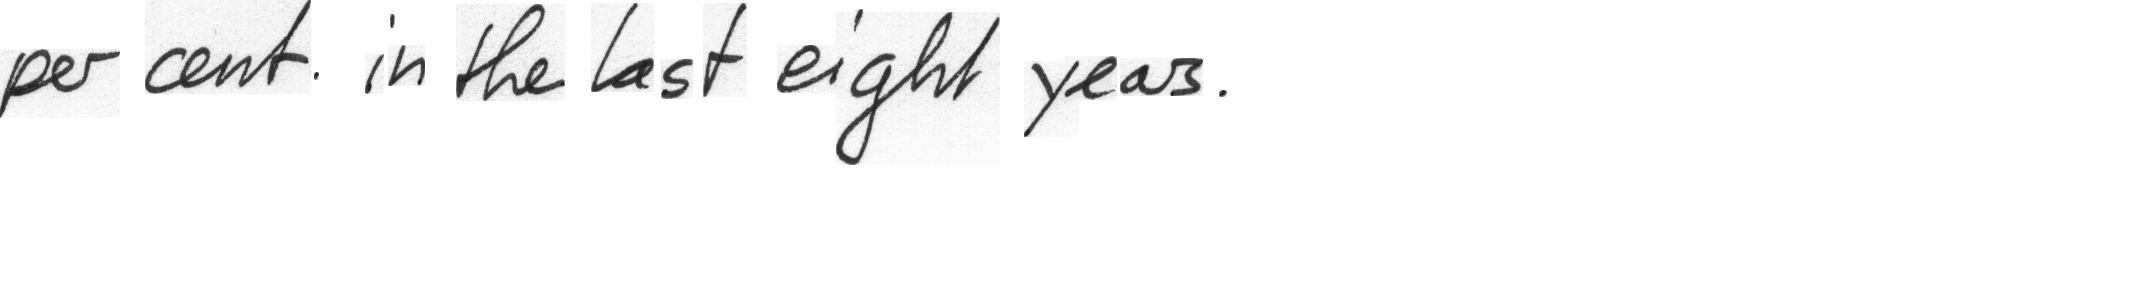 per cent. in the last eight years.